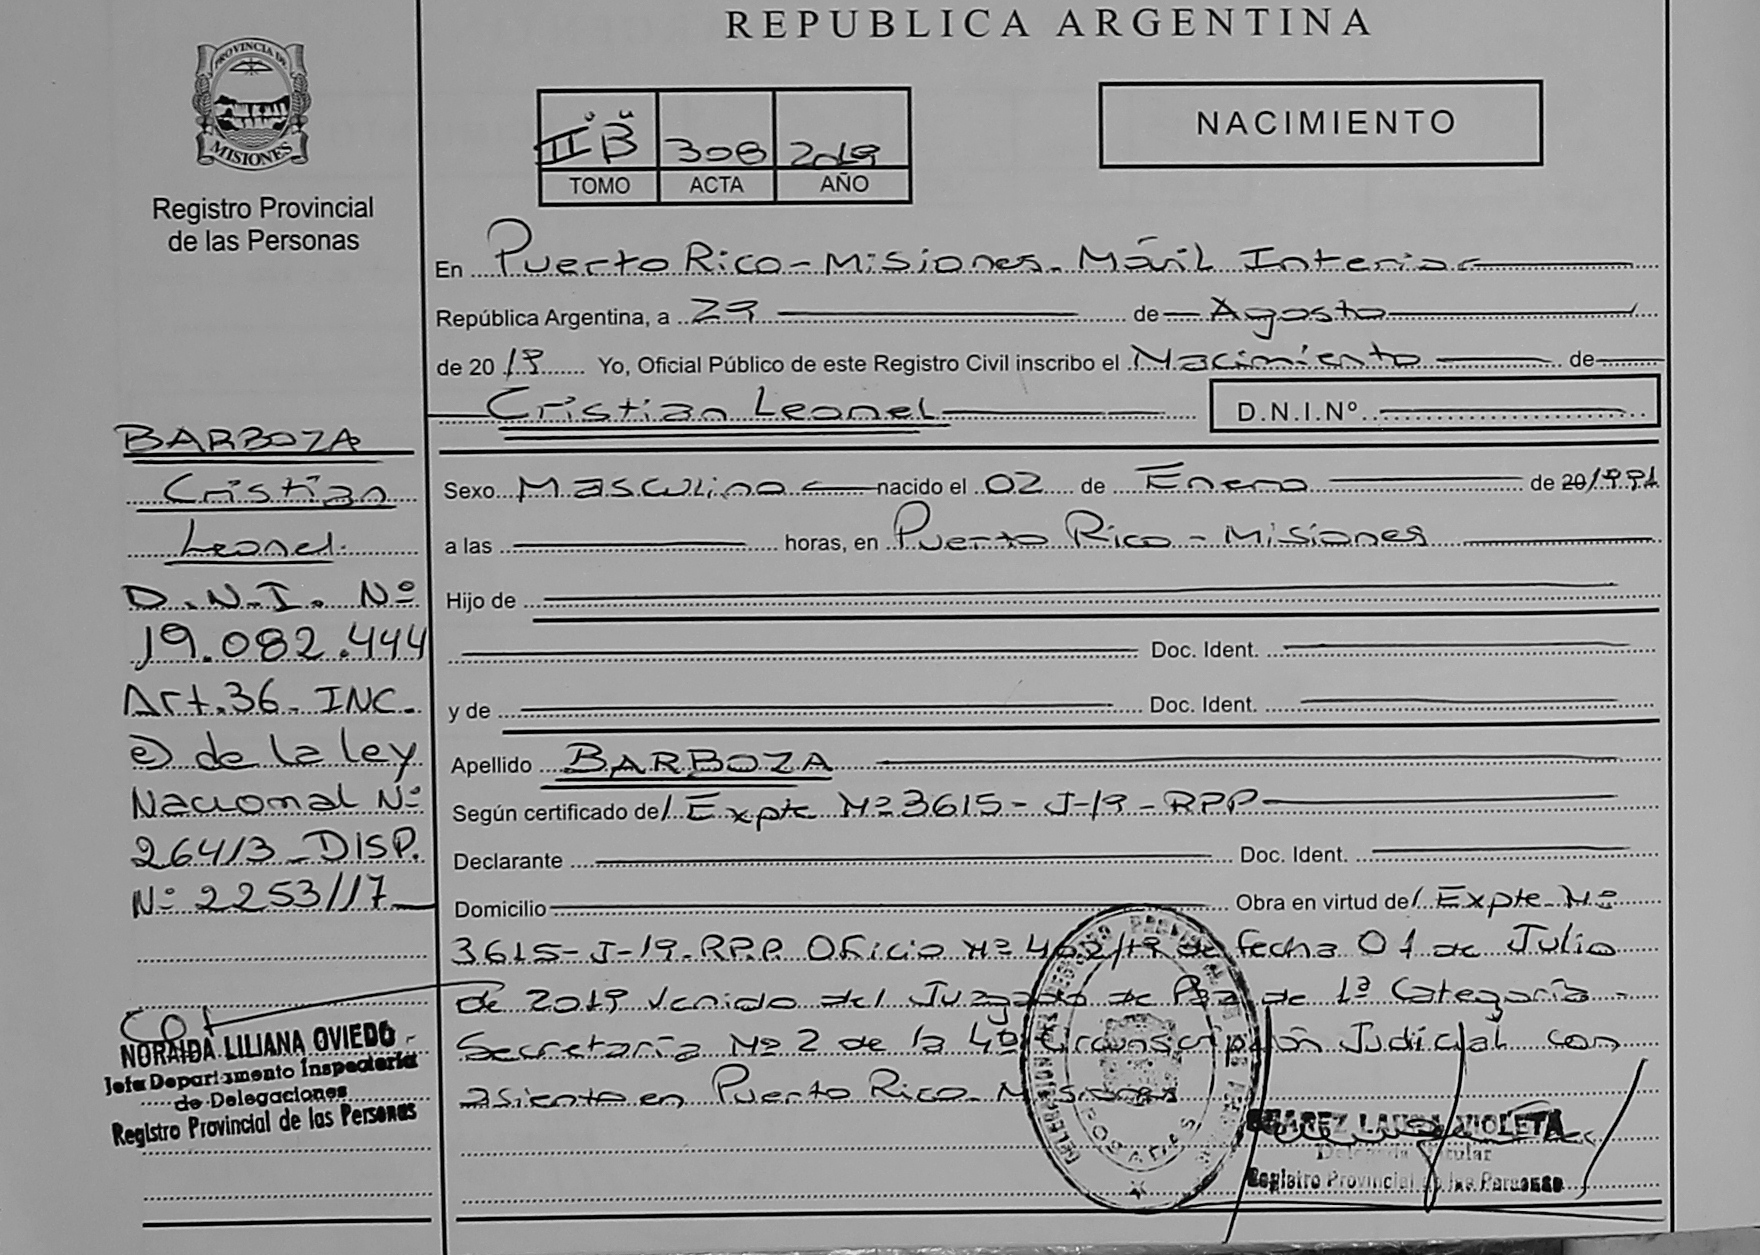 REPUBLICA ARGENTINA
PROVINCIA DE
MISIONES
Registro Provincial
de las Personas
IIº B" 308 2019
TOMO ACTA AÑO
NACIMIENTO
En Puerto Rico - Misiones. Móvil Interior
República Argentina, a 29 de Agosto
de 20 19 Yo, Oficial Público de este Registro Civil inscribo el Nacimiento de
Cristian Leonel D.N.I.Nº
Sexo Masculino nacido el 02 de Enero de 20 1991
a las horas, en Puerto Rico - Misiones
Hijo de
Doc. Ident.
y de Doc. Ident.
Apellido BARBOZA
Según certificado de/ Expte Nº 3615 - J-19 - RPP
Declarante Doc. Ident.
Domicilio Obra en virtud de/ Expte Nº
3615-J-19-RP.P. Oficio Nº 402/19 de fecha 01 de Julio
de 2019 venido del Juzgado de Paz de 1ª Categoría -
Secretaría Nº 2 de la 4º Circunscripción Judicial con
asiento en Puerto Rico - Misiones
BARBOZA
Cristian
Leonel.
D.N.I. Nº
19.082.444
Art.36 - INC.
e) de la ley
Nacional Nº
26413 - DISP.
Nº 2253//17
NORAIDA LILIANA OVIEDO
Jefa Departamento Inspectoria
de Delegaciones
Registro Provincial de las Personas
SUAREZ LAURA VIOLETA
Delegada Titular
Registro Provincial de las Personas